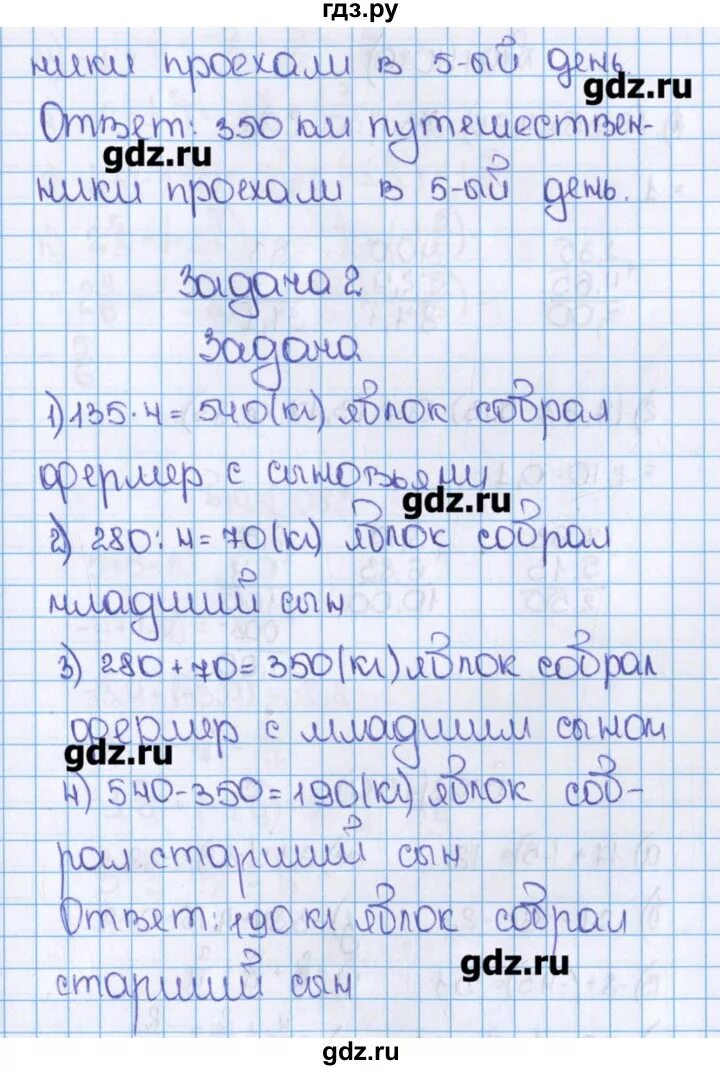 гдз.ру
ники проехали в 5-ый день.
gdz.ru
Ответ: 350 км путешествен-
gdz.ru
ники проехали в 5-ый день.
Задача 2
Задача
1) 135·4=540(кг) яблок собрал
фермер с сыновьями
gdz.ru
2) 280:4=70(кг) яблок собрал
младший сын
3) 280+70=350(кг) яблок собрал
фермер с младшим сыном
gdz.ru
4) 540-350=190(кг) яблок соб-
рал старший сын
Ответ: 190 кг яблок собрал
gdz.ru
старший сын
gdz.ru